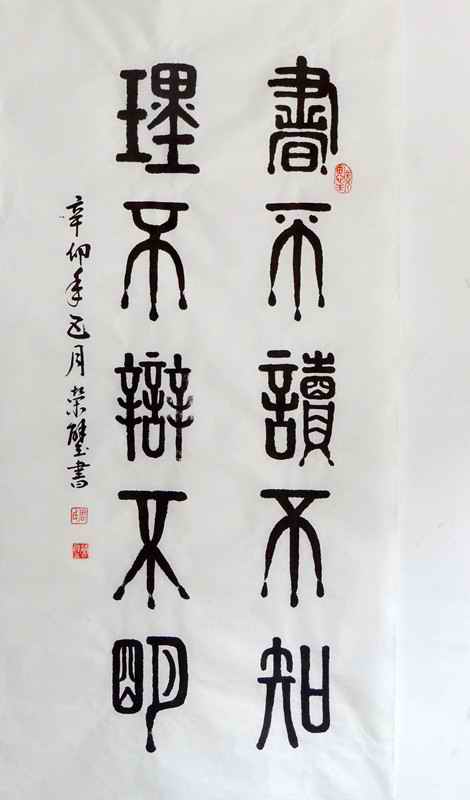 書不讀不知
理不辯不明
辛卯年五月榮璧書